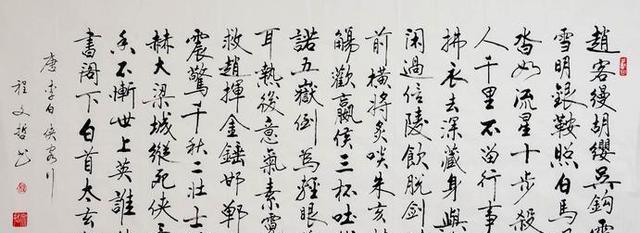 趙客縵胡纓吳鈎霜
雪明銀鞍照白馬
沓如流星十步殺
人千里不留行事
拂衣去深藏身與
閑過信陵飲脫劍
前橫將炙啖朱亥
觴歡嬴侯三杯吐
諾五嶽倒為輕眼
耳熱後意氣素霓
救趙揮金錘邯鄲
震驚千秋二壯士
赫大梁城縱死俠
香不慚世上英誰
書閣下白首太玄
唐李白俠客行
程文哲書